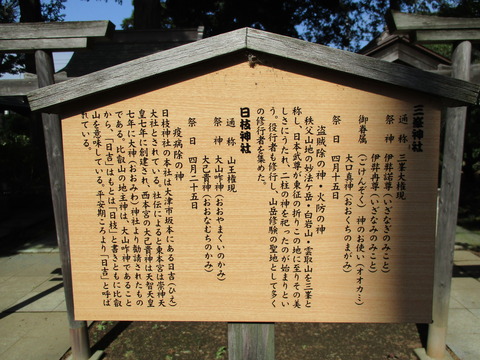 三峯神社
通称 三峯大権現
祭神 伊弉諾尊(いざなぎのみこと)
伊弉冉尊(いざなみのみこと)
御眷属 神のお使い(オオカミ)
(ごけんぞく) 大口真神(おおくちのまがみ)
祭日 四月十五日
盗賊除の神・火防の神
秩父山地の妙法ケ岳・白岩山・雲取山を三峯と
称し、日本武尊が東征の折りこの地に至りその美
しさにうたれ、二柱の神を祀ったのが始まりとい
う。役行者も修行し、山岳修験の聖地として多く
の修行者を集めた。
日枝神社
通称 山王権現
祭神 大山咋神(おおやまくいのかみ)
大己貴神(おおなむちのかみ)
祭日 四月二十五日
疫病除の神
日枝神社の本社は大津市坂本にある日吉(ひえ)
大社とされている。社伝によると東本宮は崇神天
皇七年に創建され、西本宮の大己貴神は天智天皇
七年に大神(おおみわ)神社より勧請されたもの
である。比叡山の地主神は、大山咋神であること
から、「日吉」はもとは「日枝」と書きともに比叡
山を意味している。平安期ごろより「日吉」と呼ば
れている。